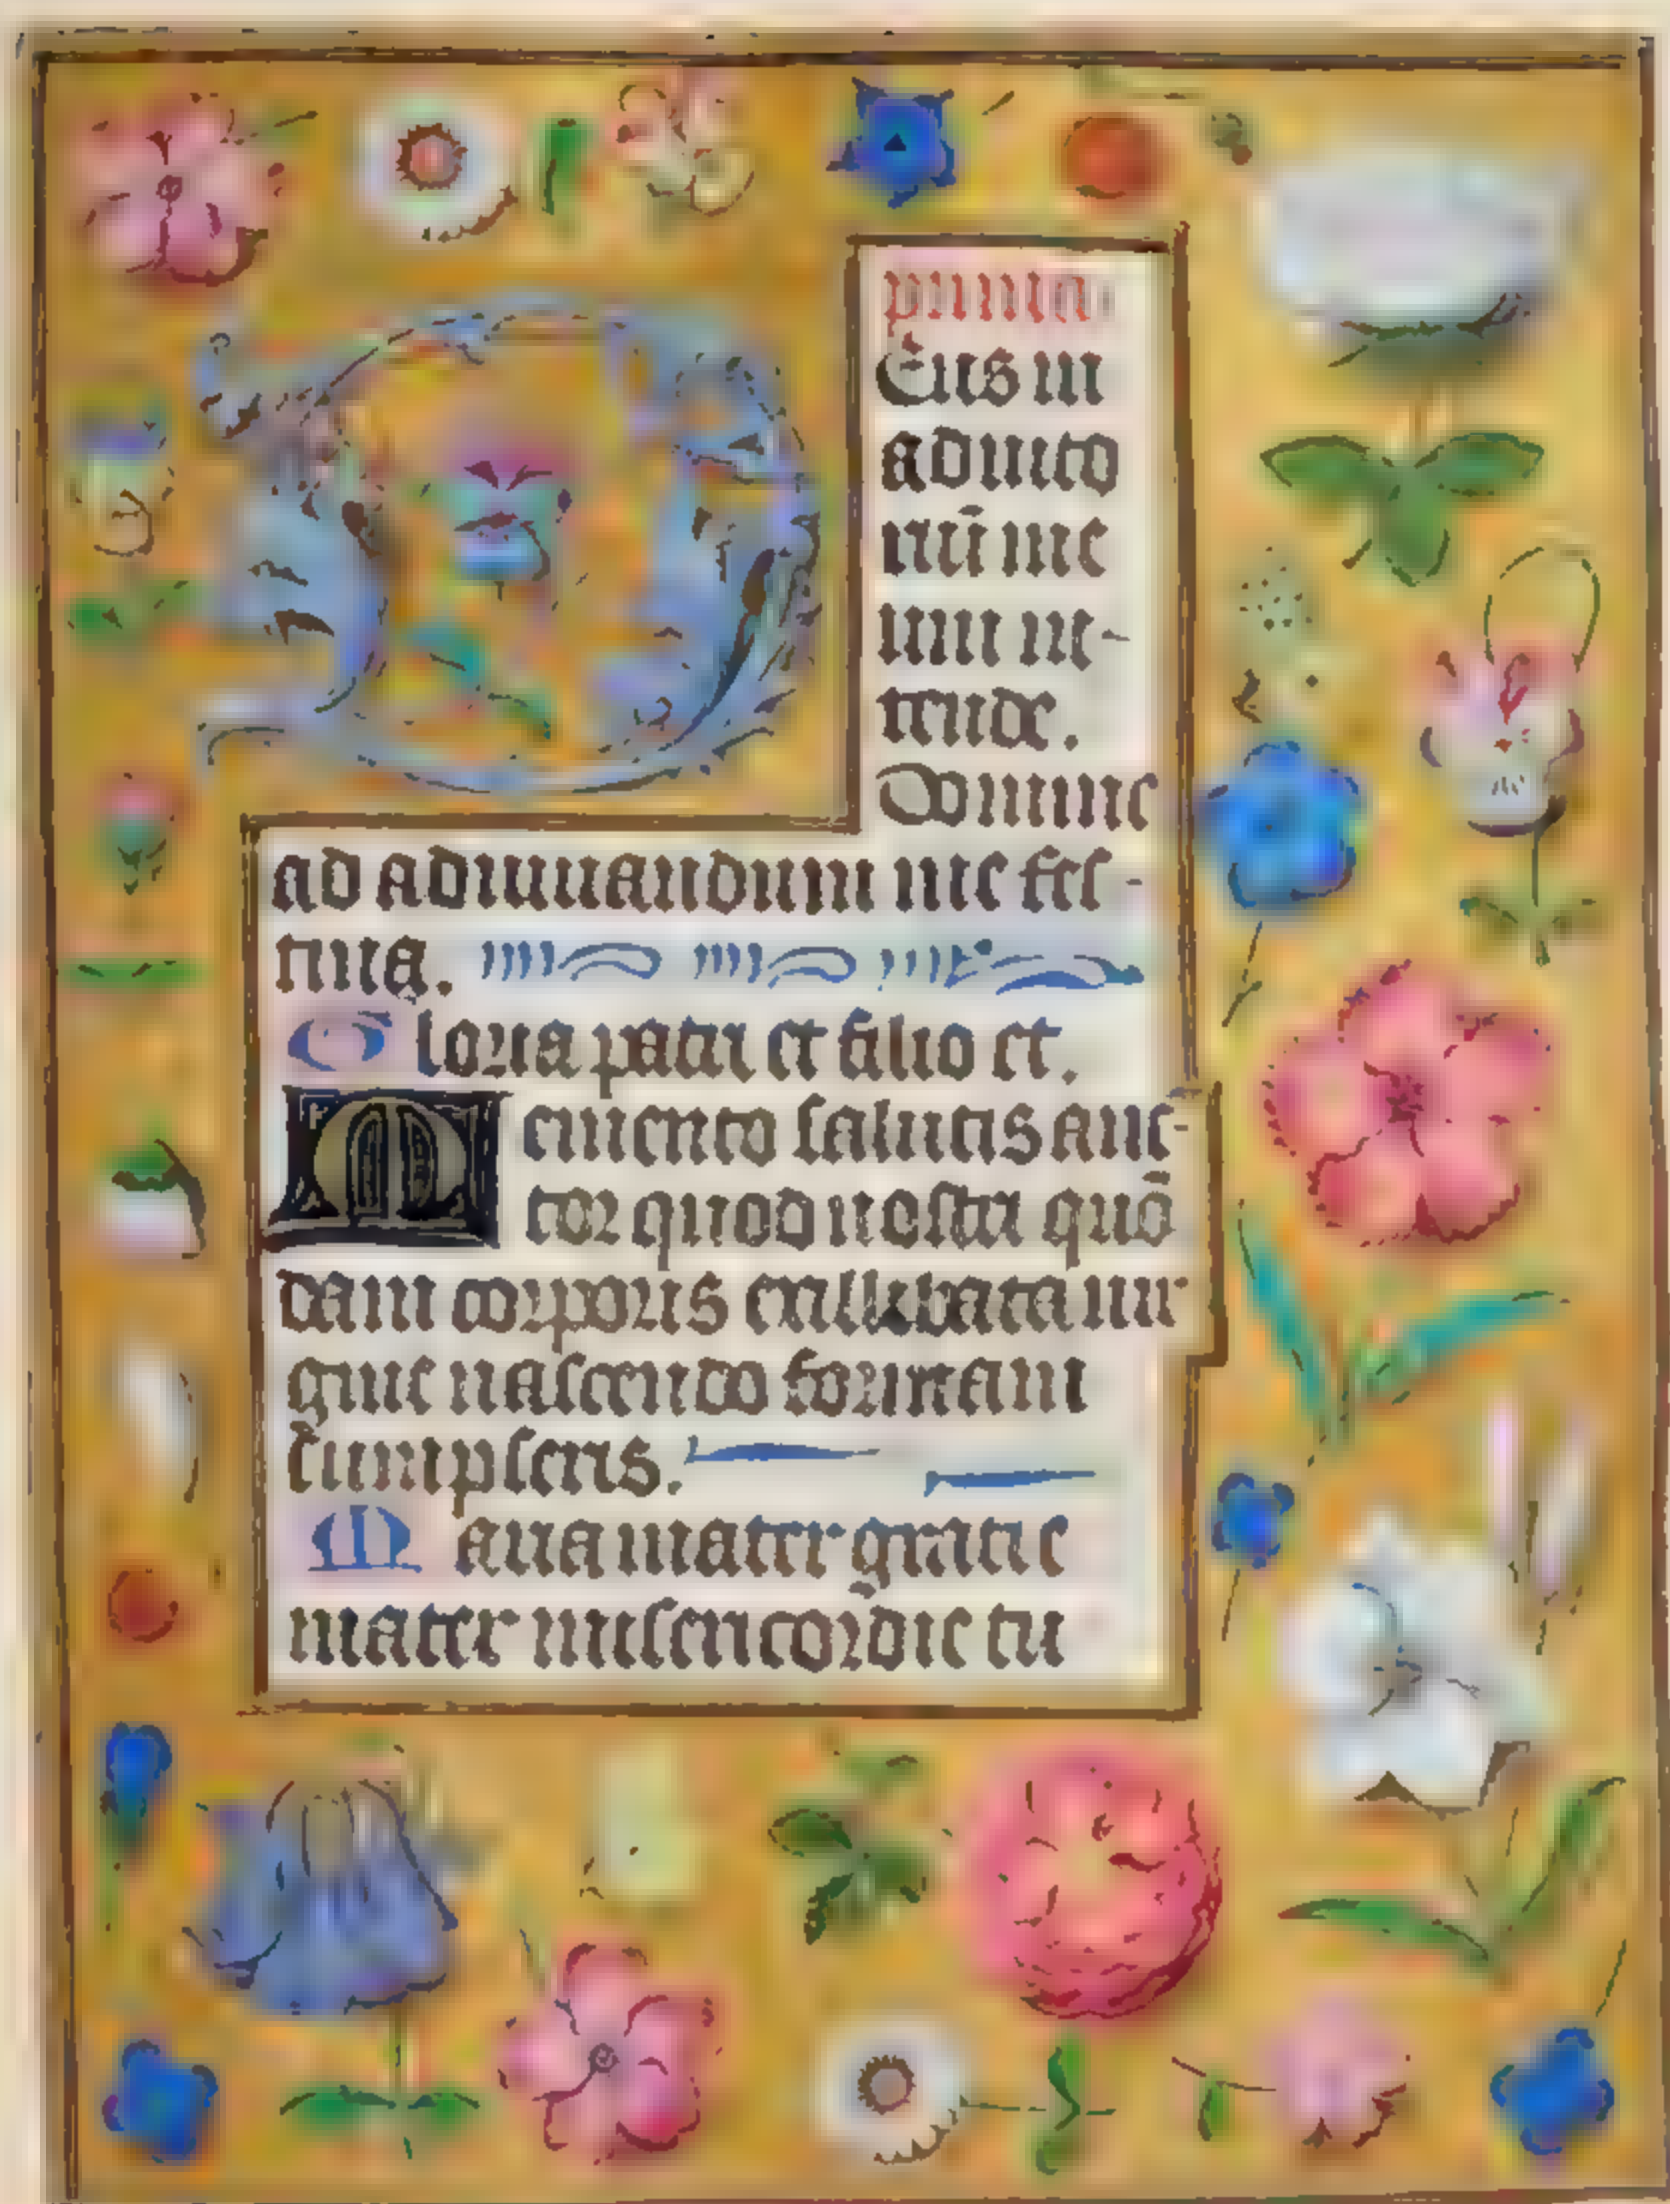 prima
Eus in
adiuto
riū me
um in-
tende.
Domine
ad adiuuandum me fes-
tina.
Gloria patri et filio et.
Memento salutis auc-
tor quod nostri quō
dam corporis ex illibata uir
gine nascendo formam
sumpseris.
Maria mater gratie
mater misericordie tu